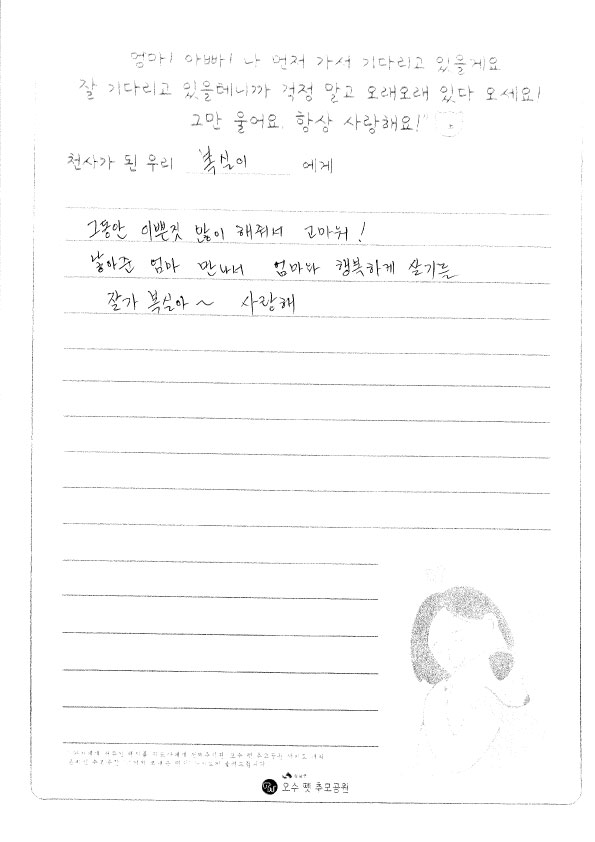 엄마! 아빠! 나 먼저 가서 기다리고 있을게요
잘 기다리고 있을테니까 걱정 말고 오래오래 있다 오세요!
그만 울어요. 항상 사랑해요!
천사가 된 우리 복실이 에게
그동안 이쁜짓 많이 해줘서 고마워!
낳아준 엄마 만나서 엄마와 행복하게 살기를
잘가 복실아~ 사랑해
오수 펫 추모공원